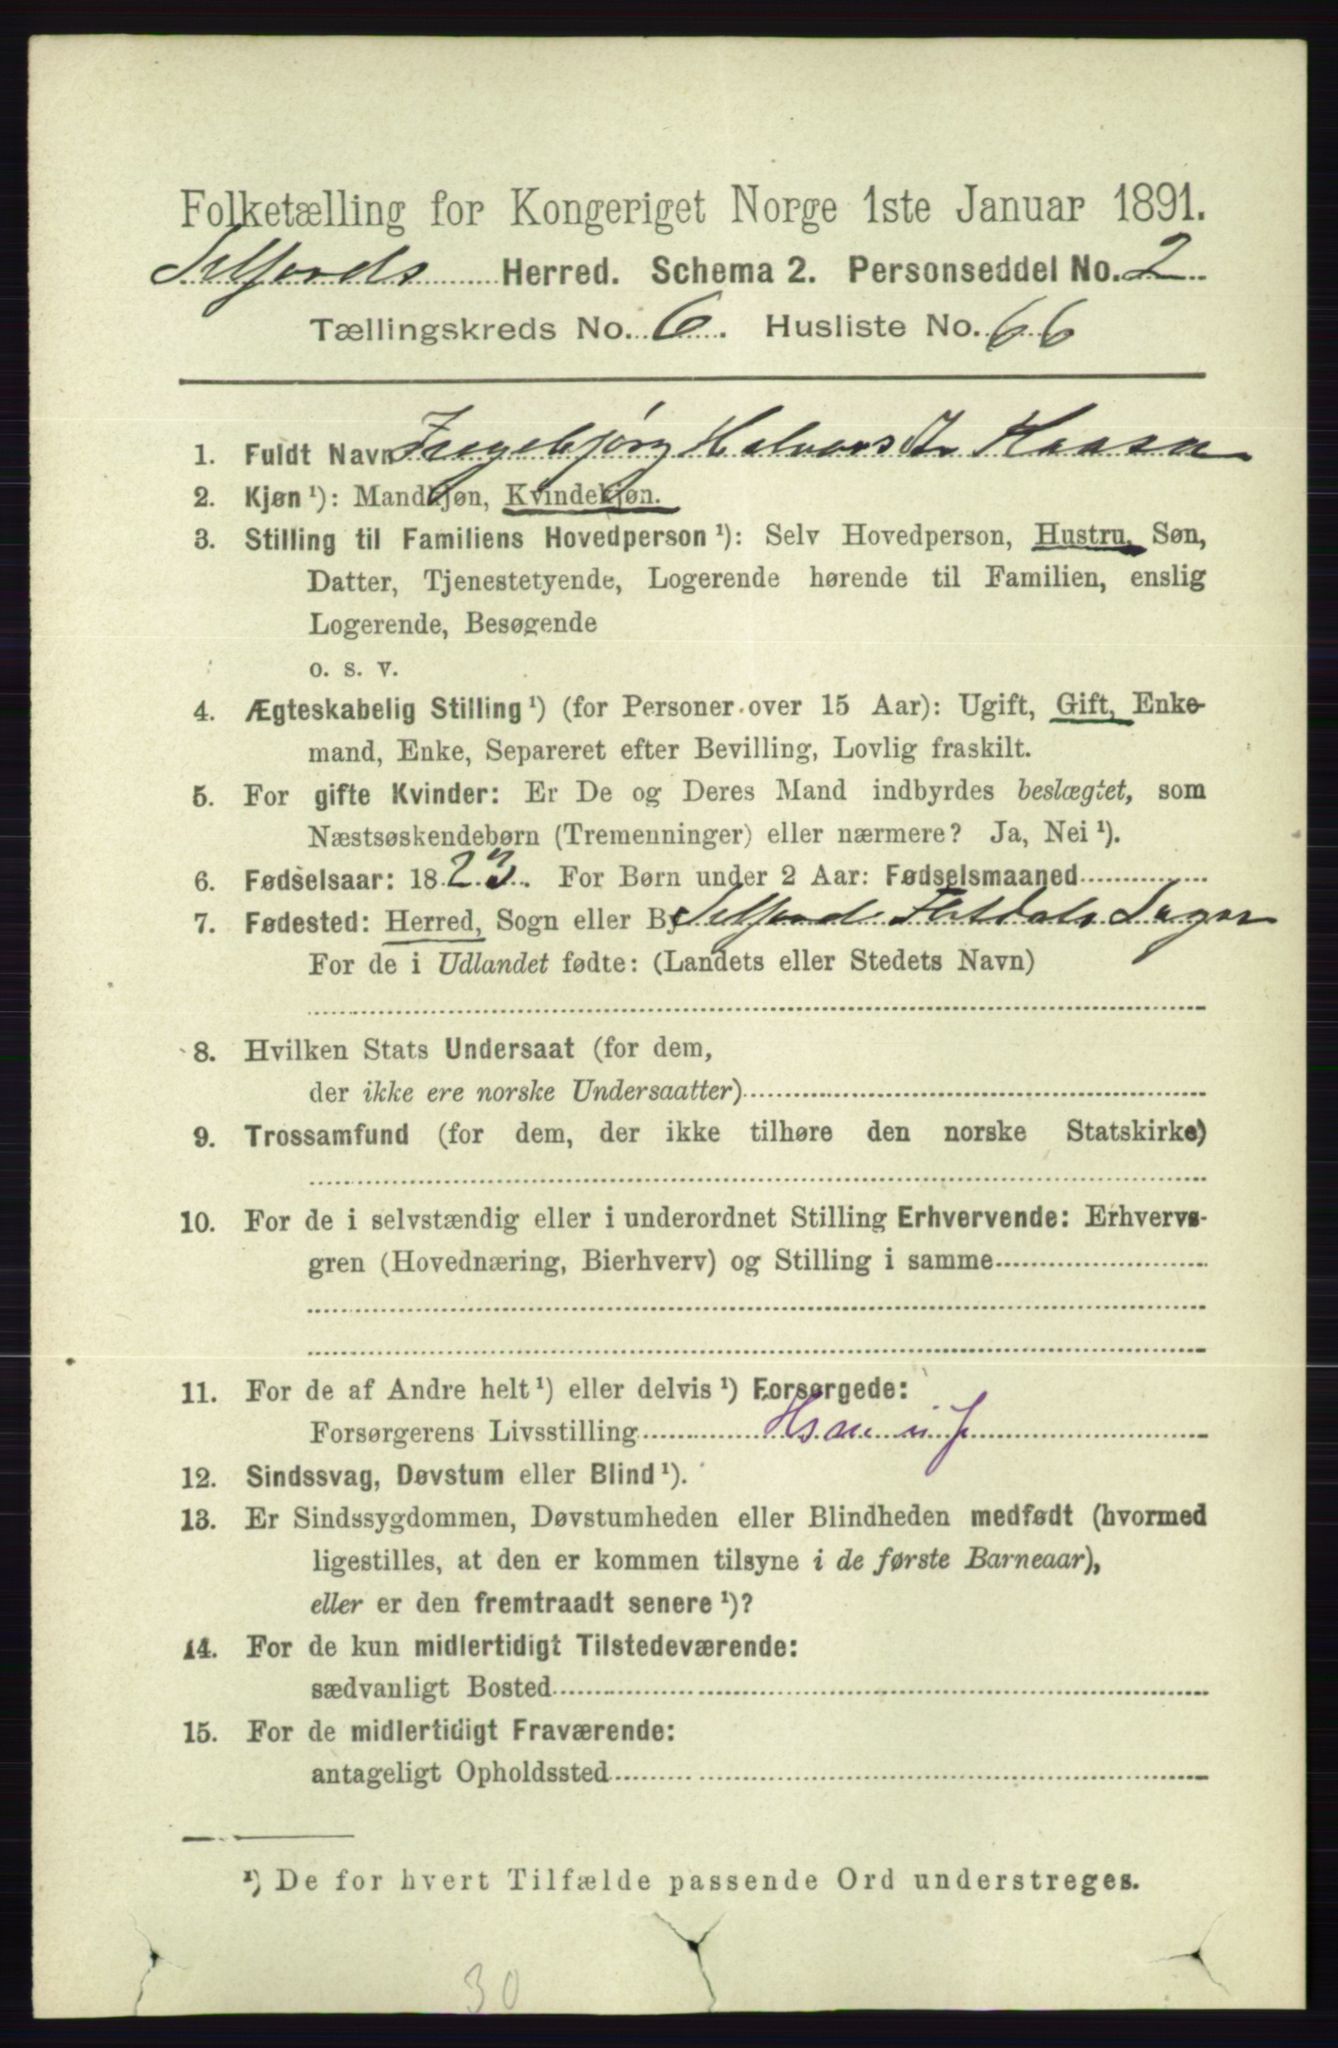 Folketælling for Kongeriget Norge 1ste Januar 1891.
Selfjords Herred. Schema 2. Personseddel No. 2
Tællingskreds No. 6. Husliste No. 66
1. Fuldt Navn Ingebjørg Halvorsdtr Haasa
2. Kjøn¹): Mandkjøn, Kvindekjøn.
3. Stilling til Familiens Hovedperson¹): Selv Hovedperson, Hustru, Søn,
Datter, Tjenestetyende, Logerende hørende til Familien, enslig
Logerende, Besøgende
o. s. v.
4. Ægteskabelig Stilling¹) (for Personer over 15 Aar): Ugift, Gift, Enke-
mand, Enke, Separeret efter Bevilling, Lovlig fraskilt.
5. For gifte Kvinder: Er De og Deres Mand indbyrdes beslægtet, som
Næstsøskendebørn (Tremenninger) eller nærmere? Ja, Nei¹).
6. Fødselsaar: 1823. For Børn under 2 Aar: Fødselsmaaned
7. Fødested: Herred, Sogn eller By Selfjord Flatdals Sogn
For de i Udlandet fødte: (Landets eller Stedets Navn)
8. Hvilken Stats Undersaat (for dem,
der ikke ere norske Undersaatter)
9. Trossamfund (for dem, der ikke tilhøre den norske Statskirke)
10. For de i selvstændig eller i underordnet Stilling Erhvervende: Erhvervs-
gren (Hovednæring, Bierhverv) og Stilling i samme
11. For de af Andre helt¹) eller delvis¹) Forsørgede:
Forsørgerens Livsstilling
12. Sindssvag, Døvstum eller Blind¹).
13. Er Sindssygdommen, Døvstumheden eller Blindheden medfødt (hvormed
ligestilles, at den er kommen tilsyne i de første Barneaar),
eller er den fremtraadt senere¹)?
14. For de kun midlertidigt Tilstedeværende:
sædvanligt Bosted
15. For de midlertidigt Fraværende:
antageligt Opholdssted
¹) De for hvert Tilfælde passende Ord understreges.
30